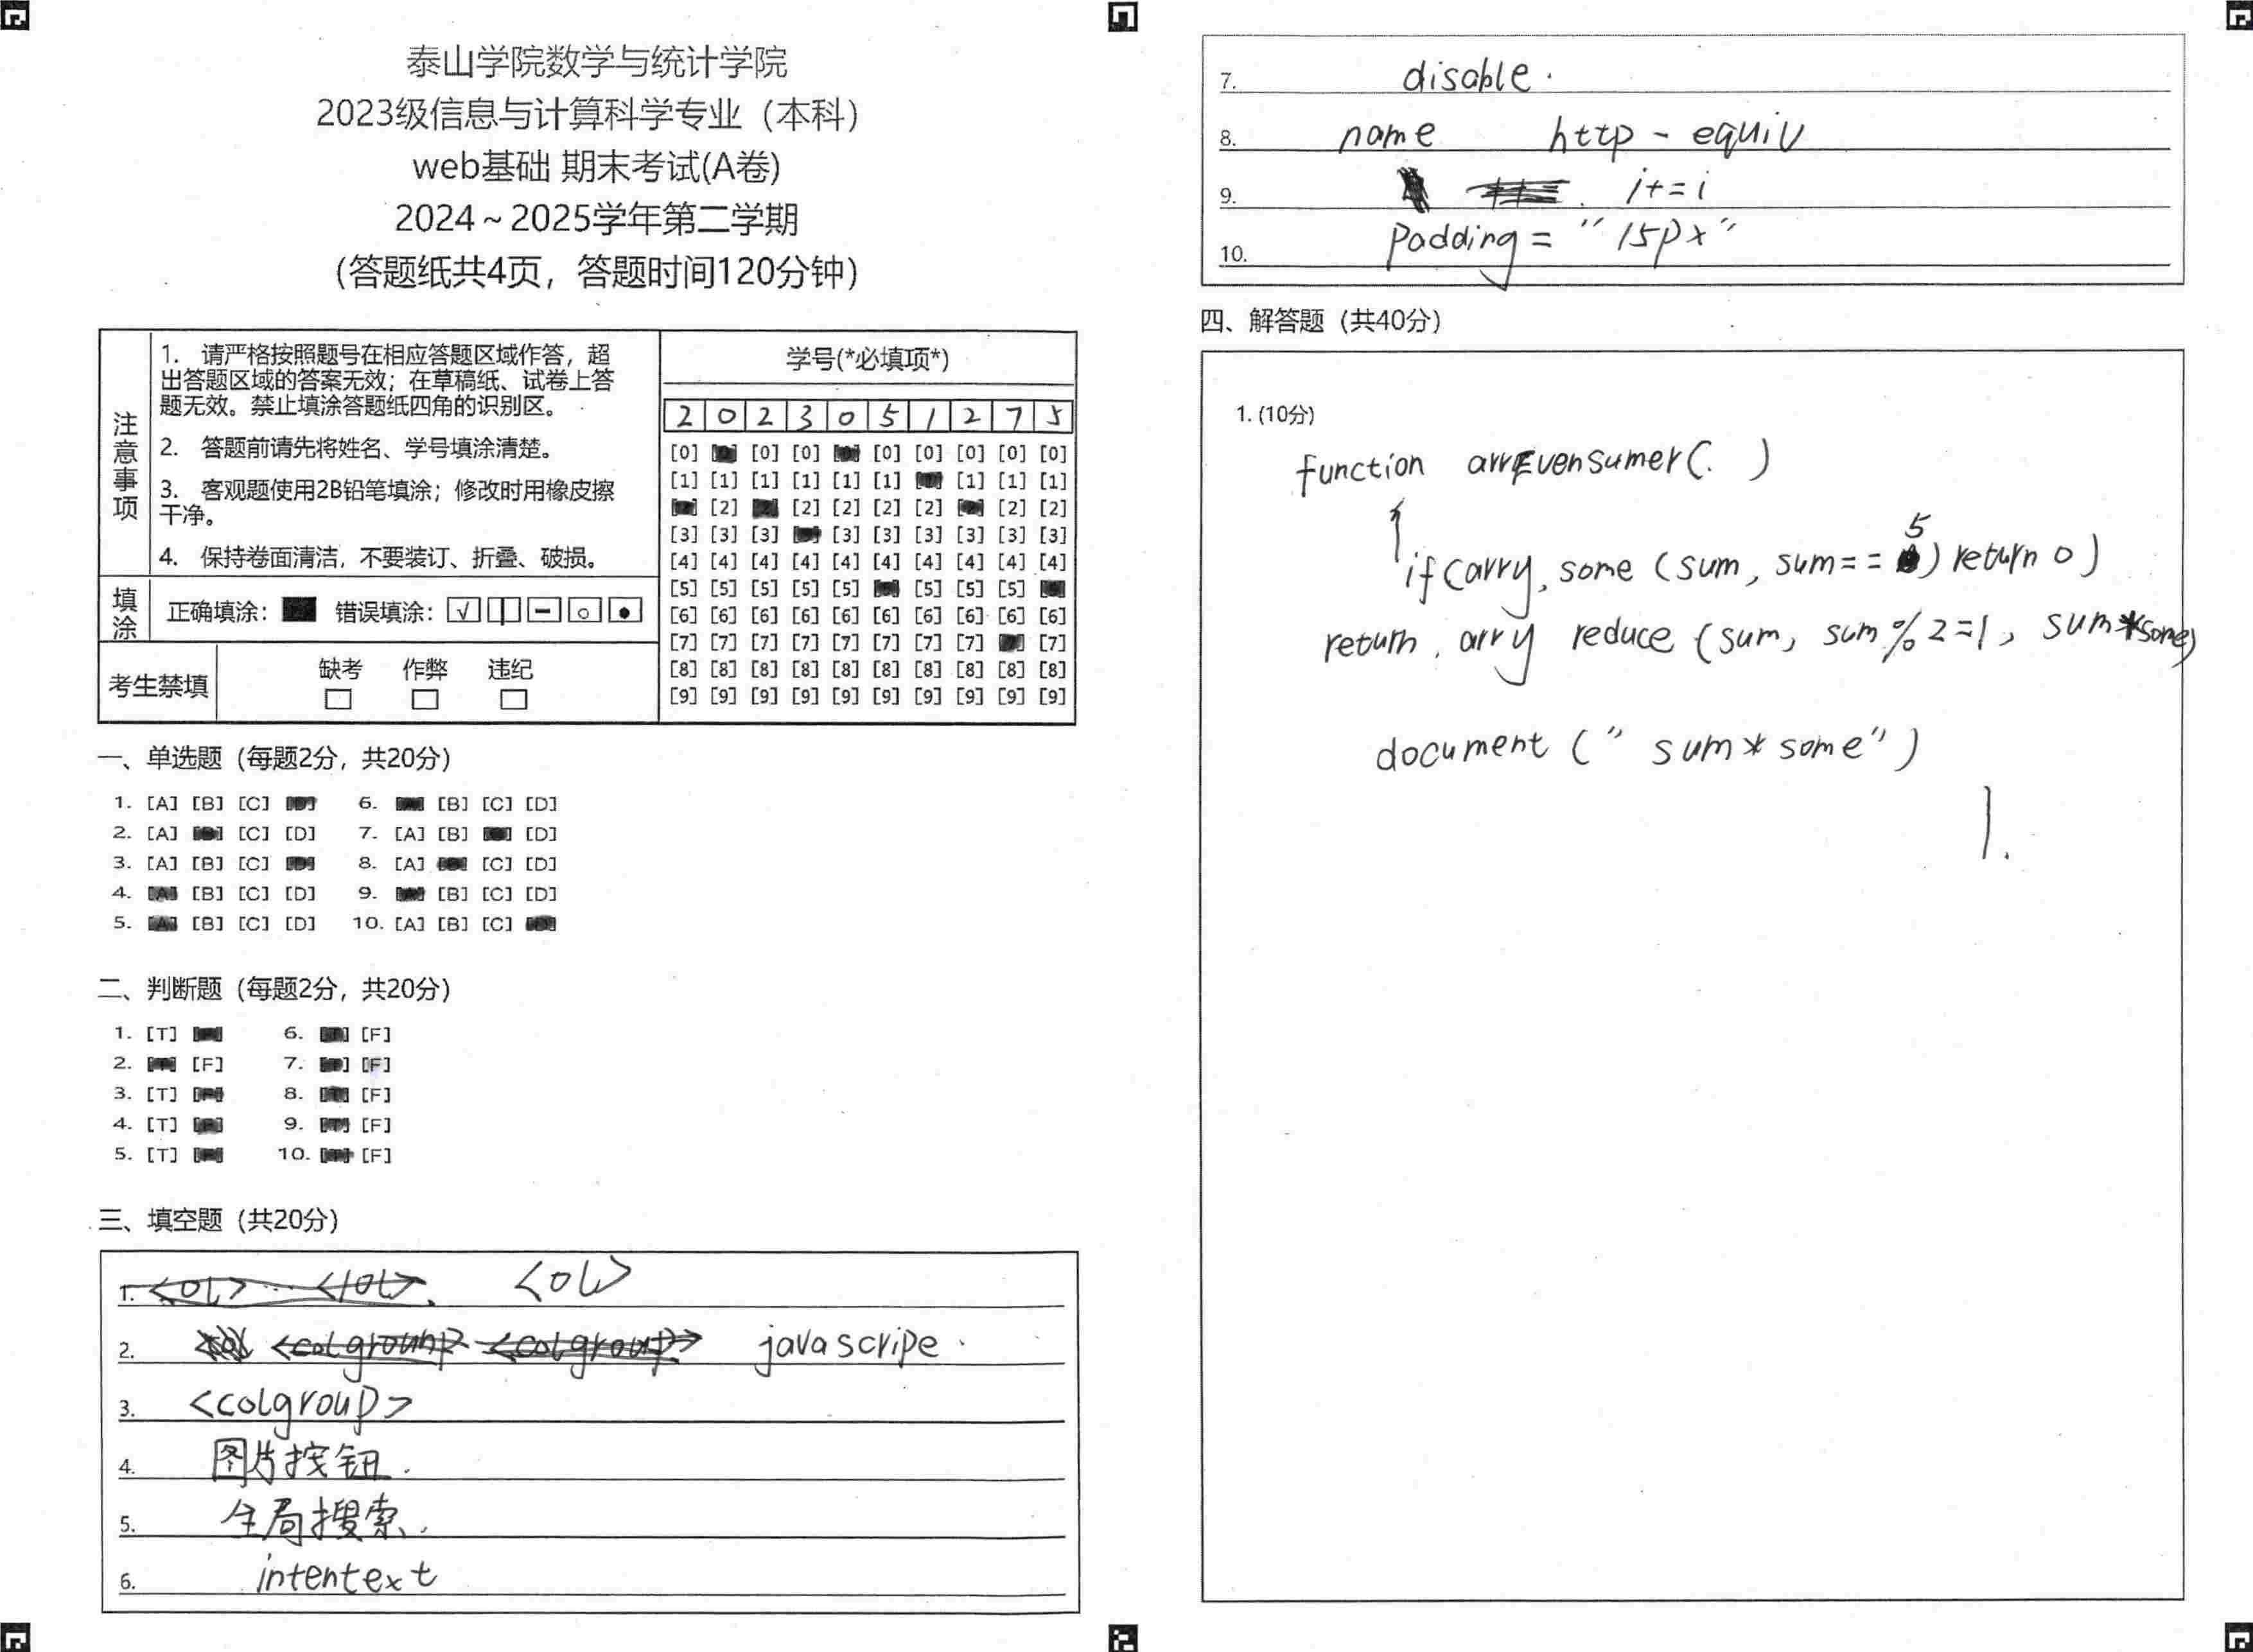 泰山学院数学与统计学院
2023级信息与计算科学专业（本科）
web基础 期末考试(A卷)
2024～2025学年第二学期
(答题纸共4页，答题时间120分钟)
注意事项
1. 请严格按照题号在相应答题区域作答，超
出答题区域的答案无效；在草稿纸、试卷上答
题无效。禁止填涂答题纸四角的识别区。
2. 答题前请先将姓名、学号填涂清楚。
3. 客观题使用2B铅笔填涂；修改时用橡皮擦
干净。
4. 保持卷面清洁，不要装订、折叠、破损。
填涂 正确填涂： 错误填涂：
考生禁填 缺考 作弊 违纪
学号(*必填项*)
2 0 2 3 0 5 1 2 7 5
[0] [0] [0] [0] [0] [0] [0] [0]
[1] [1] [1] [1] [1] [1] [1] [1] [1]
[2] [2] [2] [2] [2] [2] [2]
[3] [3] [3] [3] [3] [3] [3] [3] [3]
[4] [4] [4] [4] [4] [4] [4] [4] [4] [4]
[5] [5] [5] [5] [5] [5] [5] [5]
[6] [6] [6] [6] [6] [6] [6] [6] [6] [6]
[7] [7] [7] [7] [7] [7] [7] [7] [7]
[8] [8] [8] [8] [8] [8] [8] [8] [8] [8]
[9] [9] [9] [9] [9] [9] [9] [9] [9] [9]
一、单选题（每题2分，共20分）
1. [A] [B] [C] 6. [B] [C] [D]
2. [A] [C] [D] 7. [A] [B] [D]
3. [A] [B] [C] 8. [A] [C] [D]
4. [B] [C] [D] 9. [B] [C] [D]
5. [B] [C] [D] 10. [A] [B] [C]
二、判断题（每题2分，共20分）
1. [T] 6. [F]
2. [F] 7. [F]
3. [T] 8. [F]
4. [T] 9. [F]
5. [T] 10. [F]
三、填空题（共20分）
1. <ol>
2. javascripe
3. <colgroup>
4. 图片按钮.
5. 全局搜索.
6. intentext
7. disable.
8. name http-equiv
9. i+=i
10. Padding = "15px"
四、解答题（共40分）
1. (10分)
function arrEvensumer(. )
{
if(arry, some (sum, sum==5) return 0)
return. arry reduce (sum, sum%2=1, sum*some)
document (" sum*some")
}.